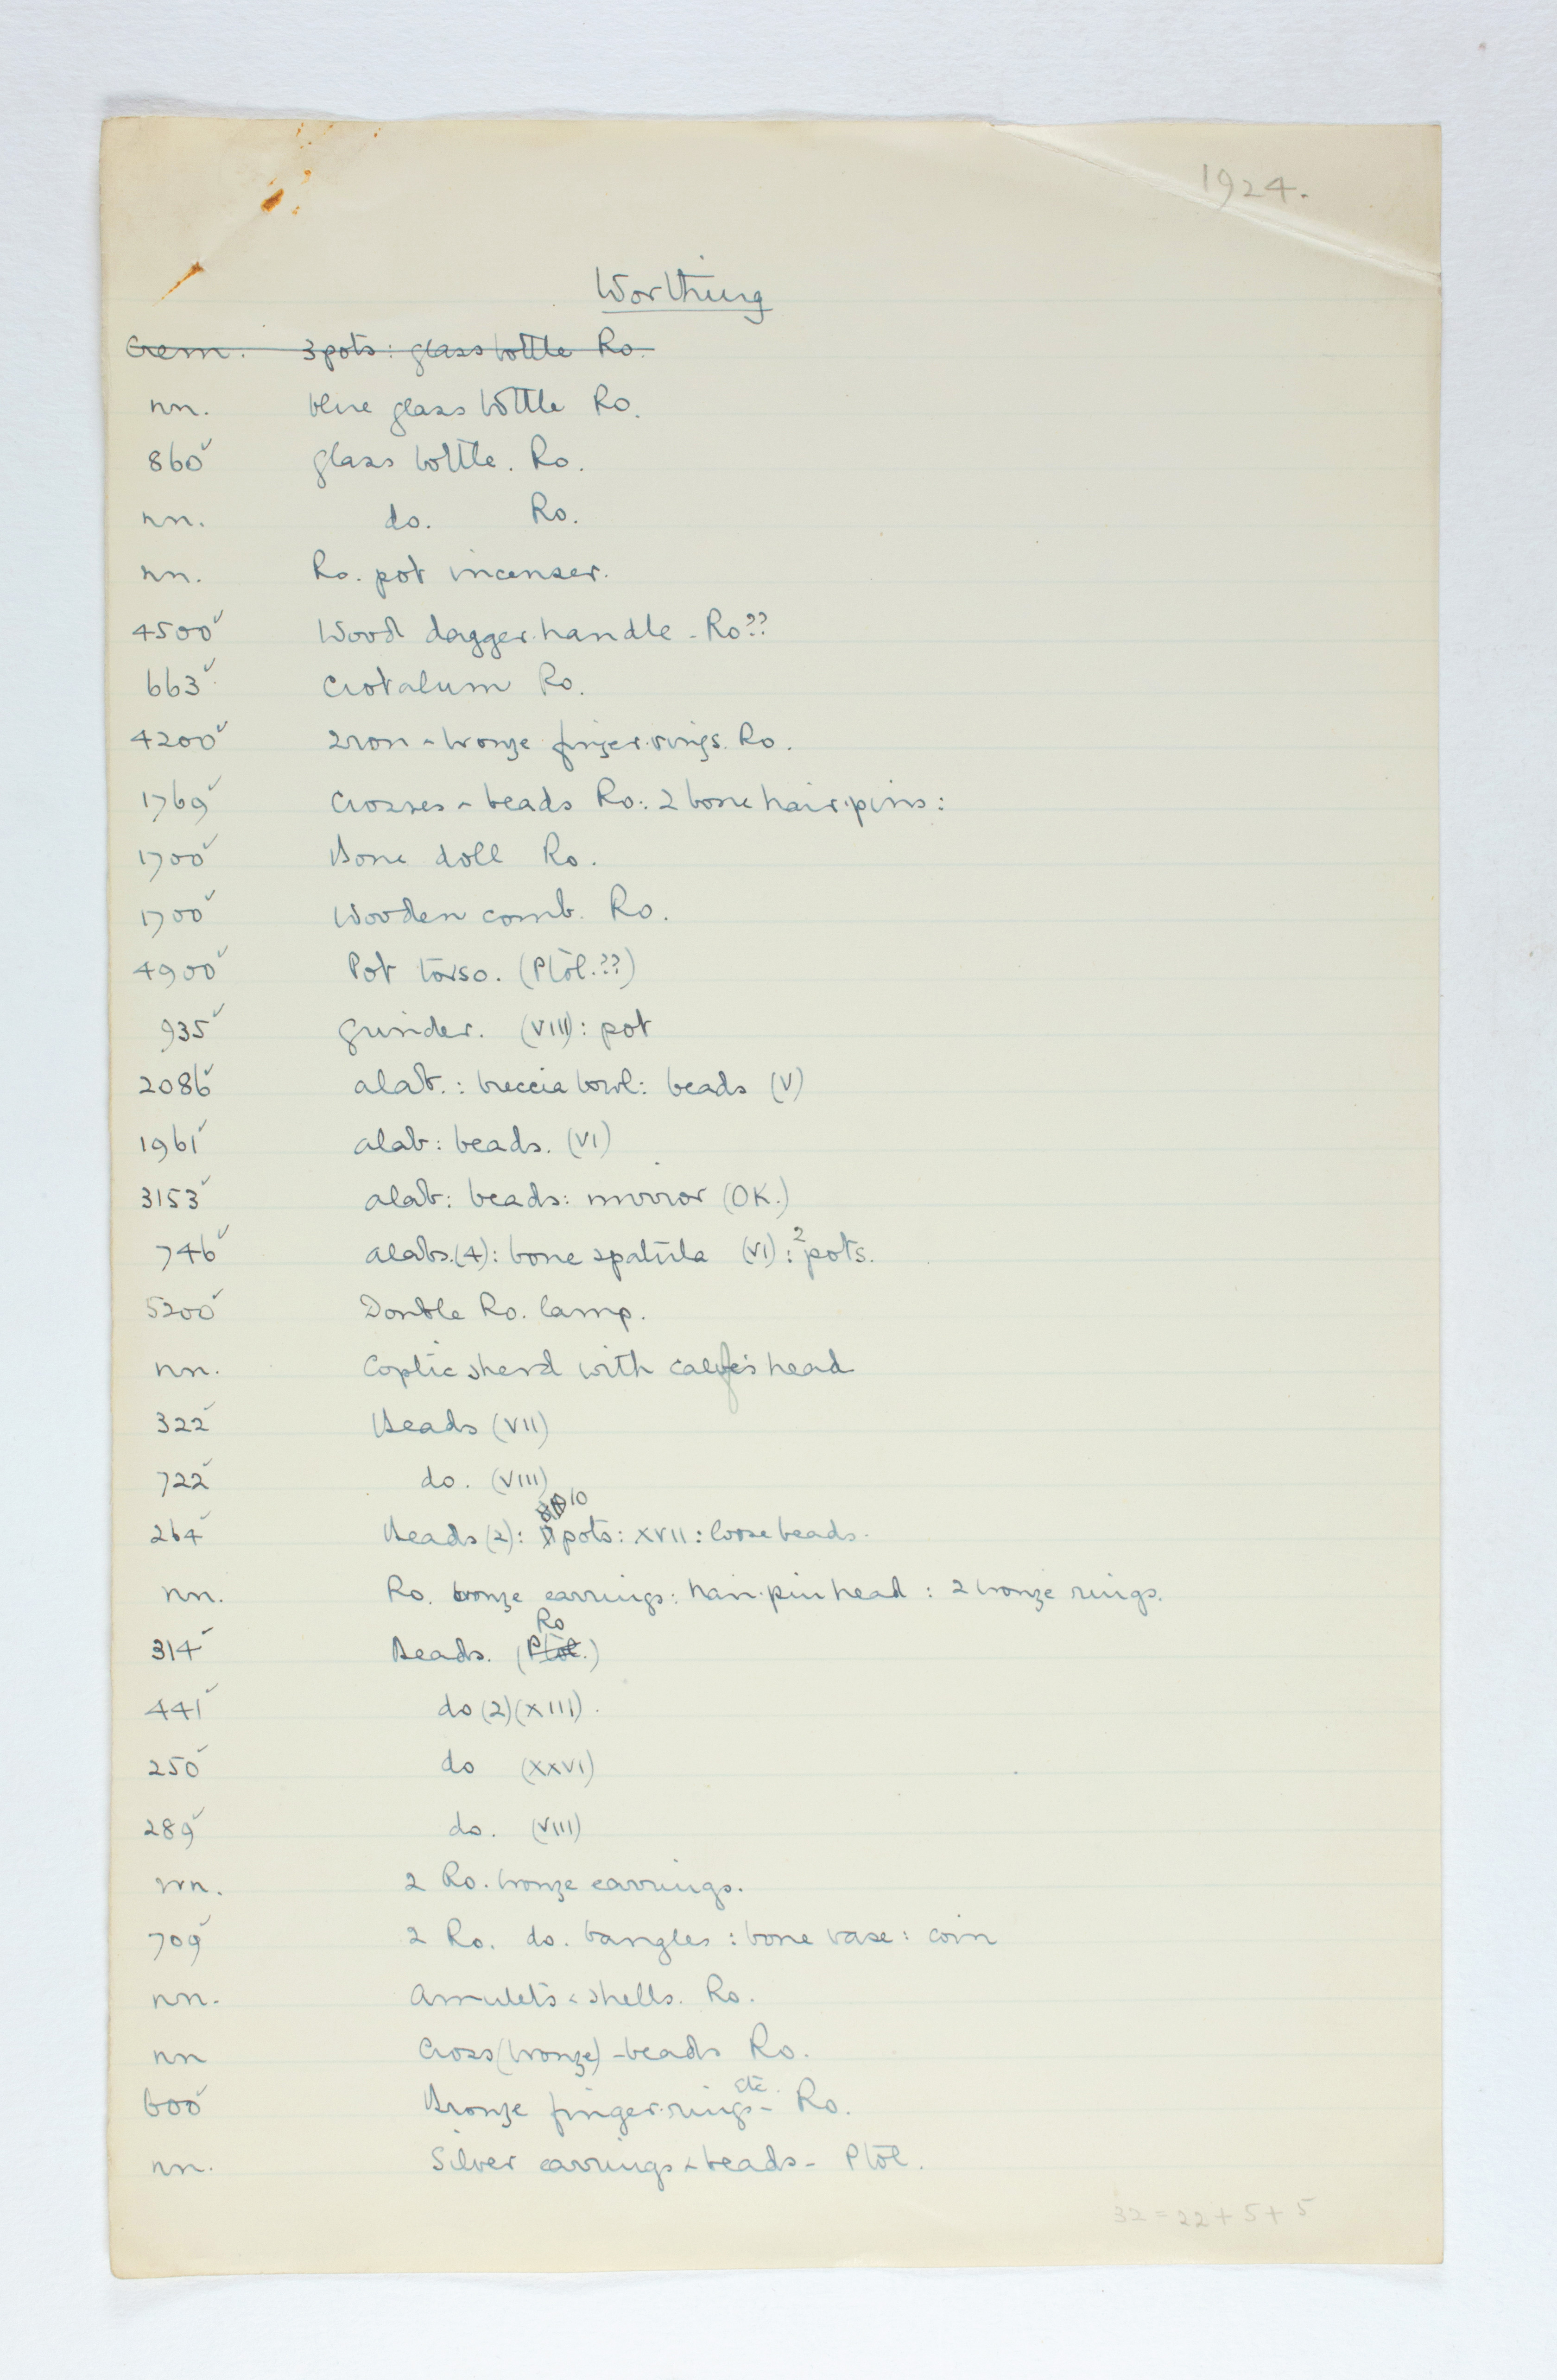 1924.
Worthing
Gem. 3 pots: glass bottle Ro.
nn. blue glass bottle Ro.
860 ✓ glass bottle. Ro.
nn. do. Ro.
nn. Ro. pot incenser.
4500 ✓ Wood dagger-handle - Ro??
663 ✓ Crotalum Ro.
4200 ✓ Iron & bronze finger-rings. Ro.
1769 ✓ Crosses & beads Ro: 2 bone hair-pins:
1700 ✓ Bone doll Ro.
1700 ✓ Wooden comb. Ro.
4900 ✓ Pot torso. (Ptol.??)
935 ✓ grinder. (VIII): pot
2086 ✓ alab.: breccia bowl: beads (V)
1961 ✓ alab: beads. (VI)
3153 ✓ alab: beads: mirror (OK.)
746 ✓ alabs.(4): bone spatula (VI): 2 pots.
5200 ✓ Double Ro. lamp.
nn. Coptic sherd with calf's head
322 ✓ Beads (VII)
722 ✓ do. (VIII)
264 ✓ Beads (2): 10 pots: XVII: loose beads.
nn. Ro. bronze earrings: hair-pin head: 2 bronze rings.
314 ✓ Beads. (Ptol. Ro)
441 ✓ do (2) (XIII).
250 ✓ do (XXVI)
289 ✓ do. (VIII)
nn. 2 Ro. bronze earrings.
709 ✓ 2 Ro. do. bangles: bone vase: coin
nn. Amulets & shells. Ro.
nn Cross (bronze) - beads Ro.
600 ✓ Bronze finger-rings etc. - Ro.
nn. Silver earrings & beads - Ptol.
32 = 22 + 5 + 5